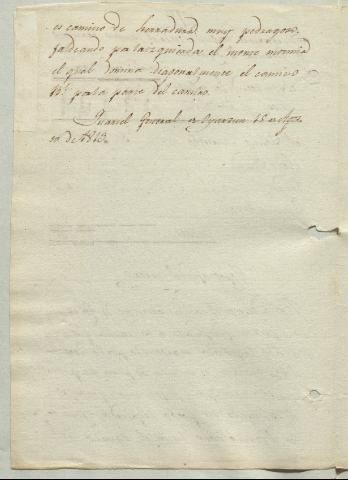 es camino de herradura muy pedragoso,
faldeando por la izquierda el monte
el qual domina diagonalmente el camino
por la parte del camino.
Quartel General de Oyarzun 15 de Agos-
to de 1813.